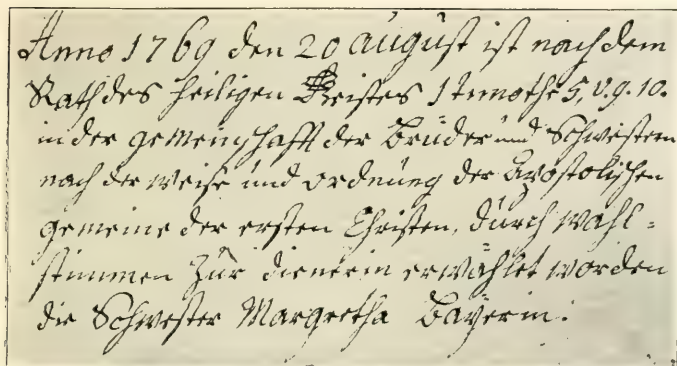 Anno 1769 den 20 august ist nach dem
Rath des heiligen Geistes 1 Timothe 5, v. 9. 10.
in der gemeinschafft der Brüder und Schwestern
nach der weise und ordnung der Apostolischen
gemeine der ersten Christen, durch wahl=
stimmen Zur dienerin erwählet worden
die Schwester Margretha Bayerin.